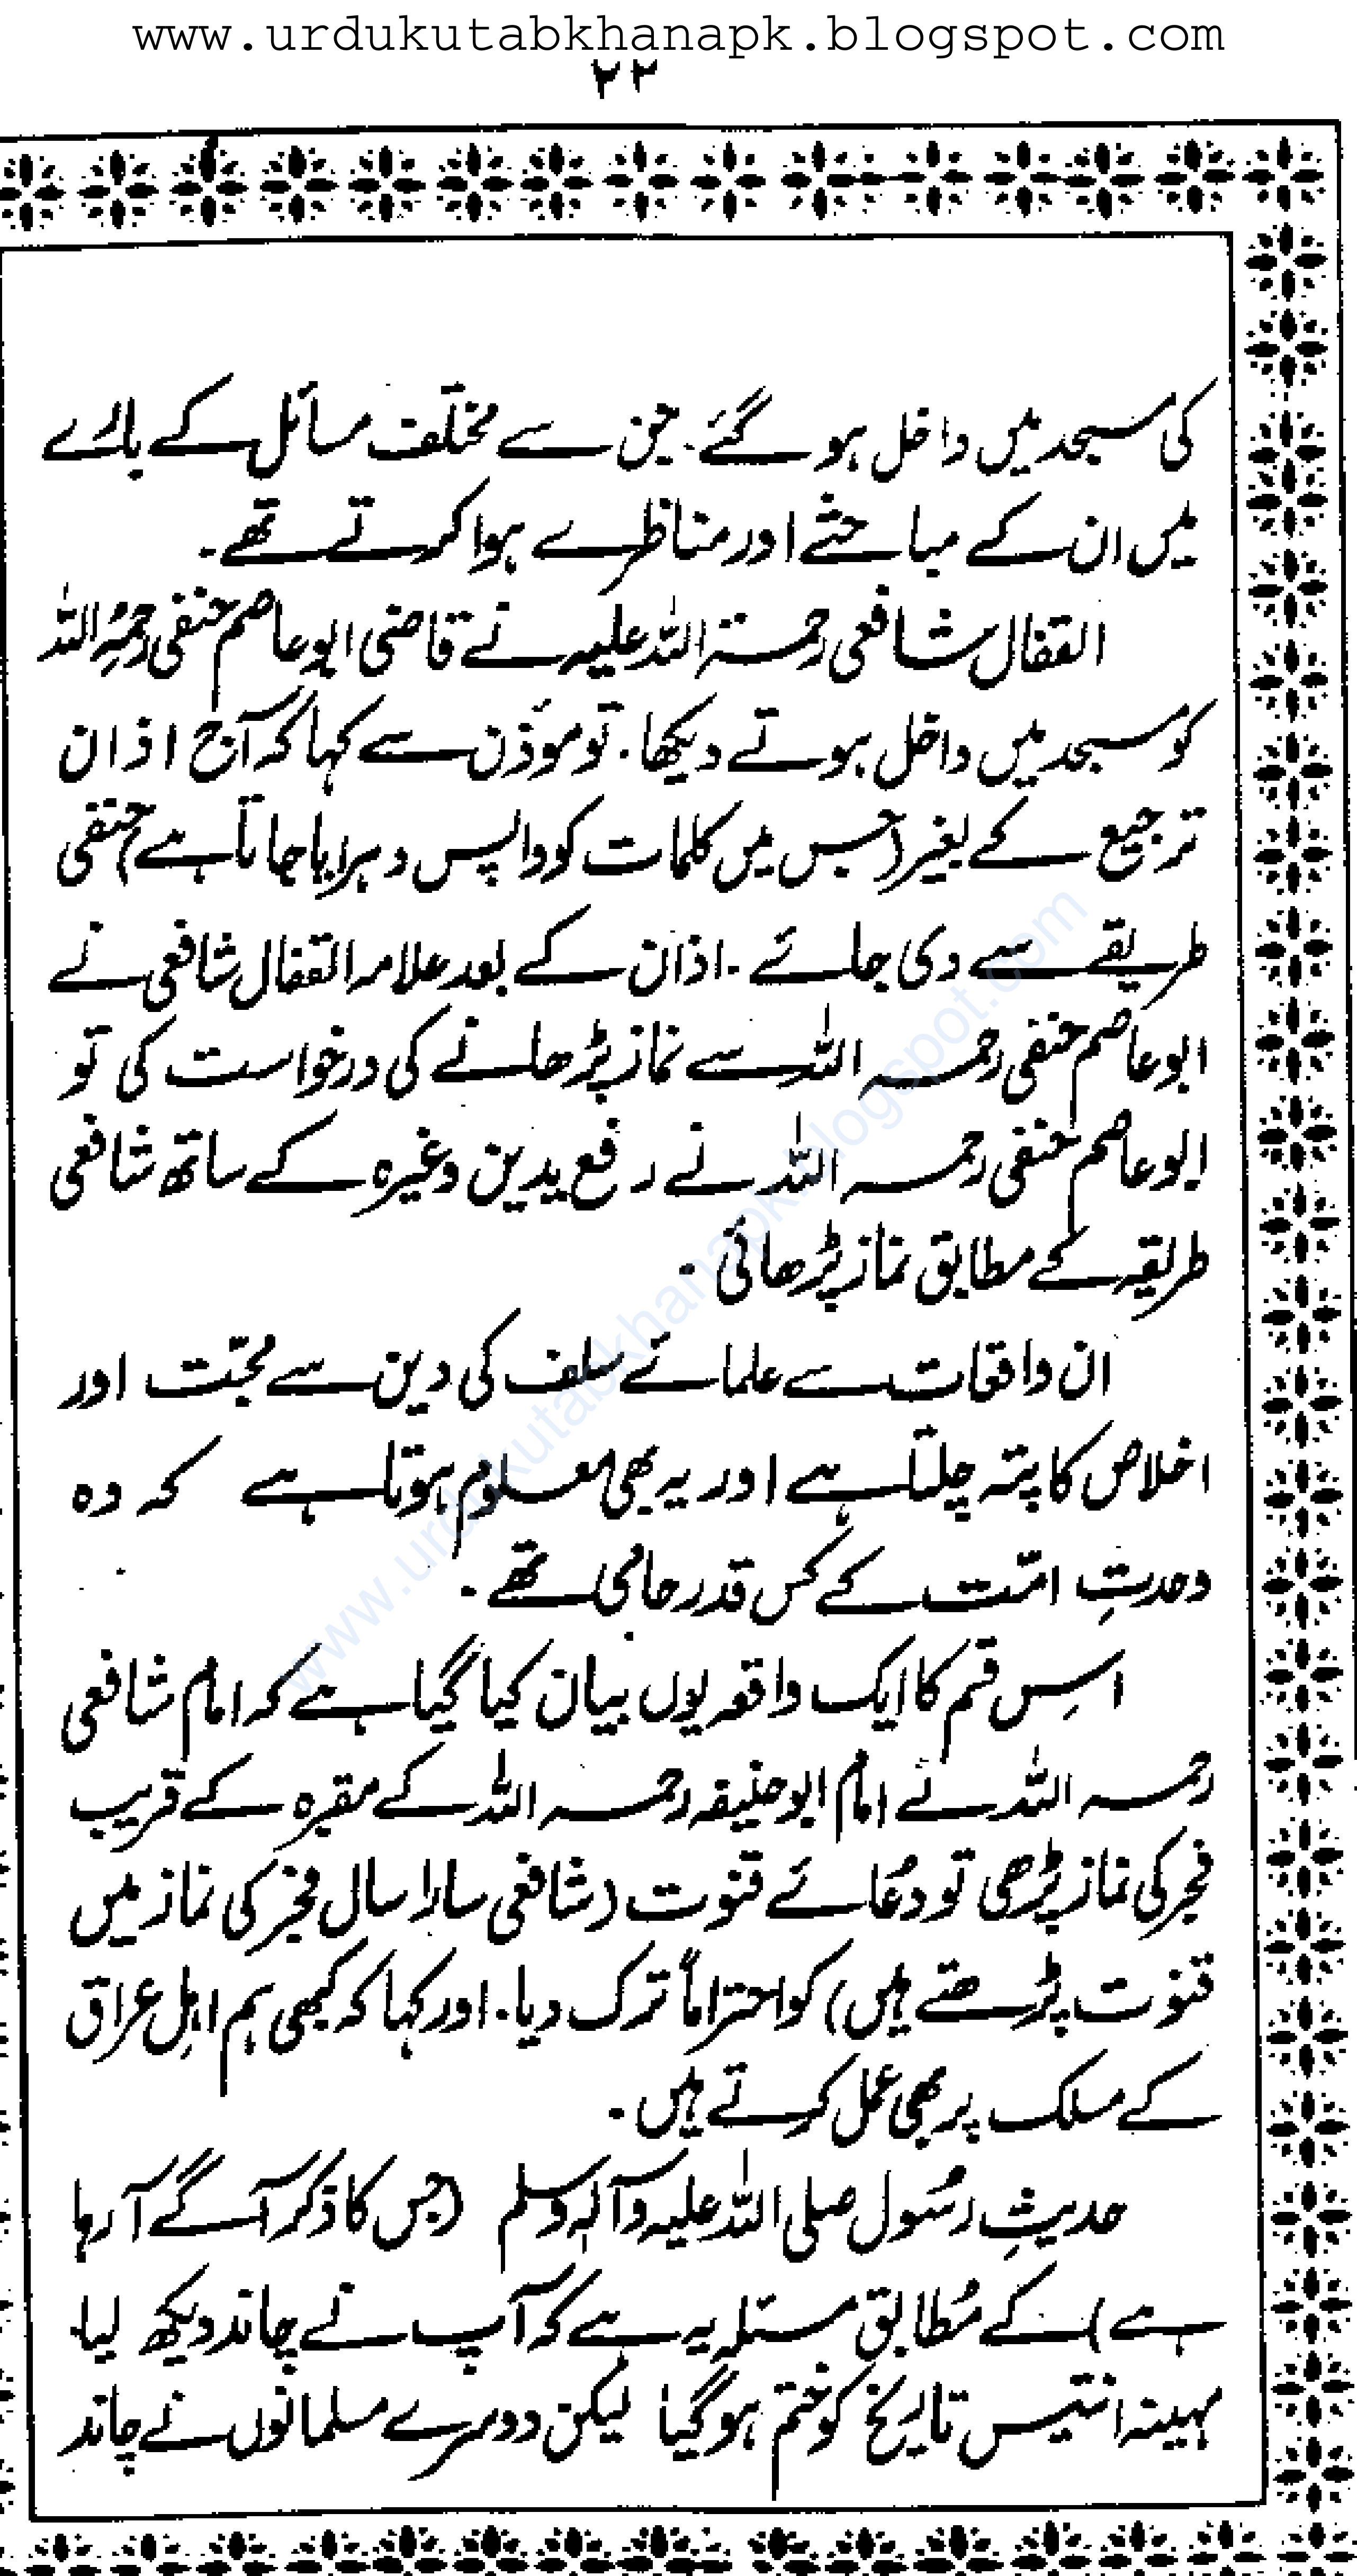 www.urdukutabkhanapk.blogspot.com
۲۲
کی مسجد میں داخل ہو گئے۔ جن سے مختلف مسائل کے بارے
میں ان کے مباحثے اور مناظرے ہوا کرتے تھے۔
القفال شافعی رحمۃ اللہ علیہ نے قاضی ابو عاصم حنفی رحمہ اللہ
کو مسجد میں داخل ہوتے دیکھا۔ تو مؤذن سے کہا کہ آج اذان
ترجیع کے بغیر (جس میں کلمات کو واپس دہرایا جاتا ہے) حنفی
طریقے سے دی جائے۔ اذان کے بعد علامہ القفال شافعی نے
ابو عاصم حنفی رحمہ اللہ سے نماز پڑھانے کی درخواست کی تو
ابو عاصم حنفی رحمہ اللہ نے رفع یدین وغیرہ کے ساتھ شافعی
طریقہ کے مطابق نماز پڑھائی۔
ان واقعات سے علمائے سلف کی دین سے محبّت اور
اخلاص کا پتہ چلتا ہے اور یہ بھی معلوم ہوتا ہے کہ وہ
وحدتِ امّت کے کس قدر حامی تھے۔
اسِ قسم کا ایک واقعہ یوں بیان کیا گیا ہے کہ امام شافعی
رحمہ اللہ نے امام ابو حنیفہ رحمہ اللہ کے مقبرہ کے قریب
فجر کی نماز پڑھی تو دعُائے قنوت (شافعی سارا سال فجر کی نماز میں
قنوت پڑھتے ہیں) کو احتراماً ترک دیا۔ اور کہا کہ کبھی ہم اہلِ عراق
کے مسلک پر بھی عمل کرتے ہیں۔
حدیثِ رسُول صلی اللہ علیہ وآلہٖ وسلم (جس کا ذکر آگے آ رہا
ہے) کے مُطابق مسئلہ یہ ہے کہ آپ نے چاند دیکھ لیا۔
مہینہ انتیس تاریخ کو ختم ہو گیا لیکن دوسرے مسلمانوں نے چاند
www.urdukutabkhanapk.blogspot.com